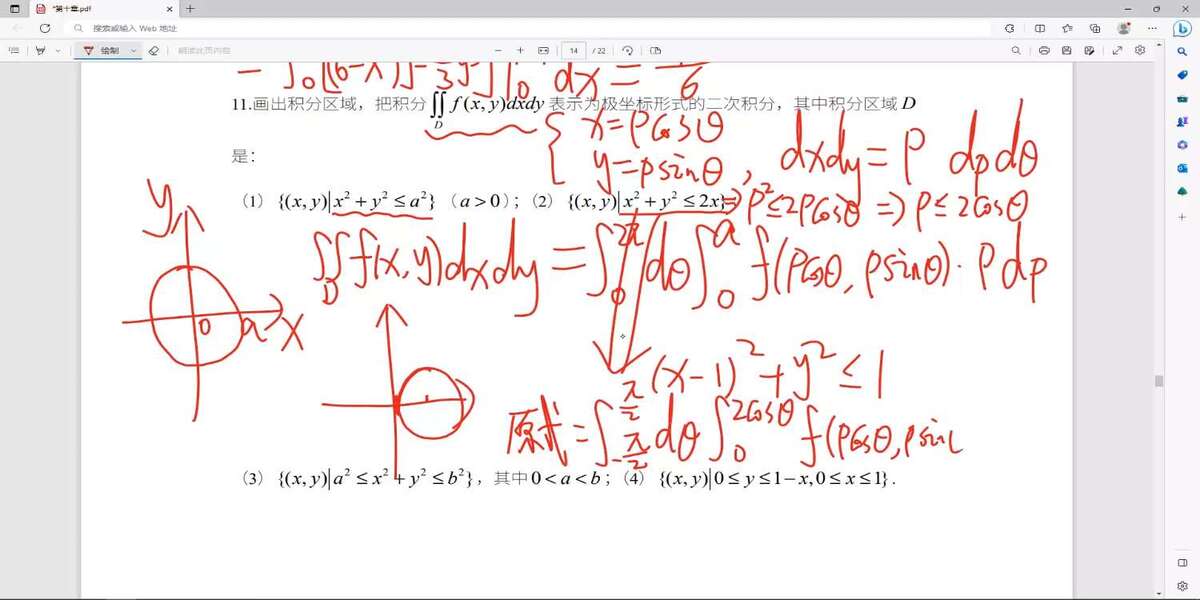 *第十章.pdf
搜索或输入 Web 地址
绘制 朗读此页内容 14 / 22
∫₀[(6-x)
dx = 6
11.画出积分区域，把积分∬_D f(x,y)dxdy 表示为极坐标形式的二次积分，其中积分区域 D
{ x=ρcosθ
是：
y=ρsinθ , dxdy = ρ dρdθ
（1） {(x,y)|x²+y²≤a²} （a>0）；（2） {(x,y)|x²+y²≤2x} ⇒ ρ²≤2ρcosθ ⇒ ρ≤2cosθ
y
∬_D f(x,y)dxdy = ∫₀^{2π} dθ ∫₀^a f(ρcosθ, ρsinθ)·ρdρ
0 a x
(x-1)²+y²≤1
原式 = ∫_{-π/2}^{π/2} dθ ∫₀^{2cosθ} f(ρcosθ, ρsin
（3） {(x,y)|a²≤x²+y²≤b²}，其中0<a<b；（4） {(x,y)|0≤y≤1−x,0≤x≤1}.